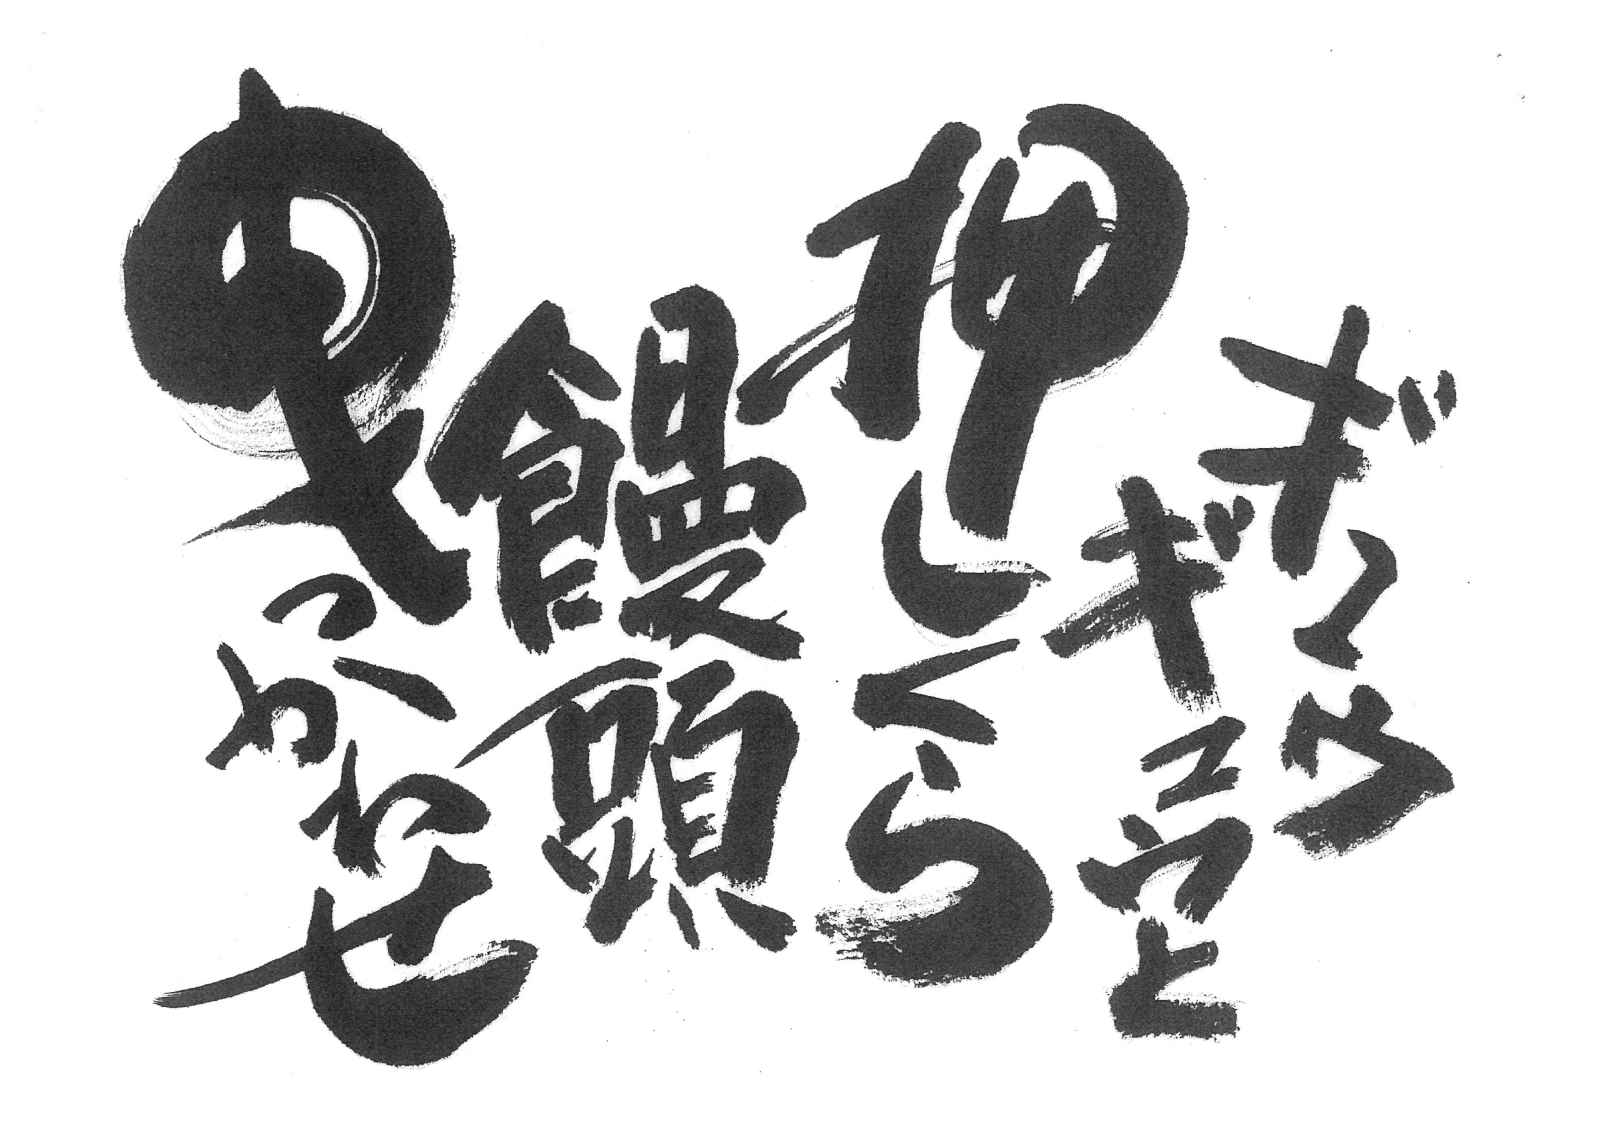 ギュウ
ギュウと
押しくら
饅頭
っかわせ